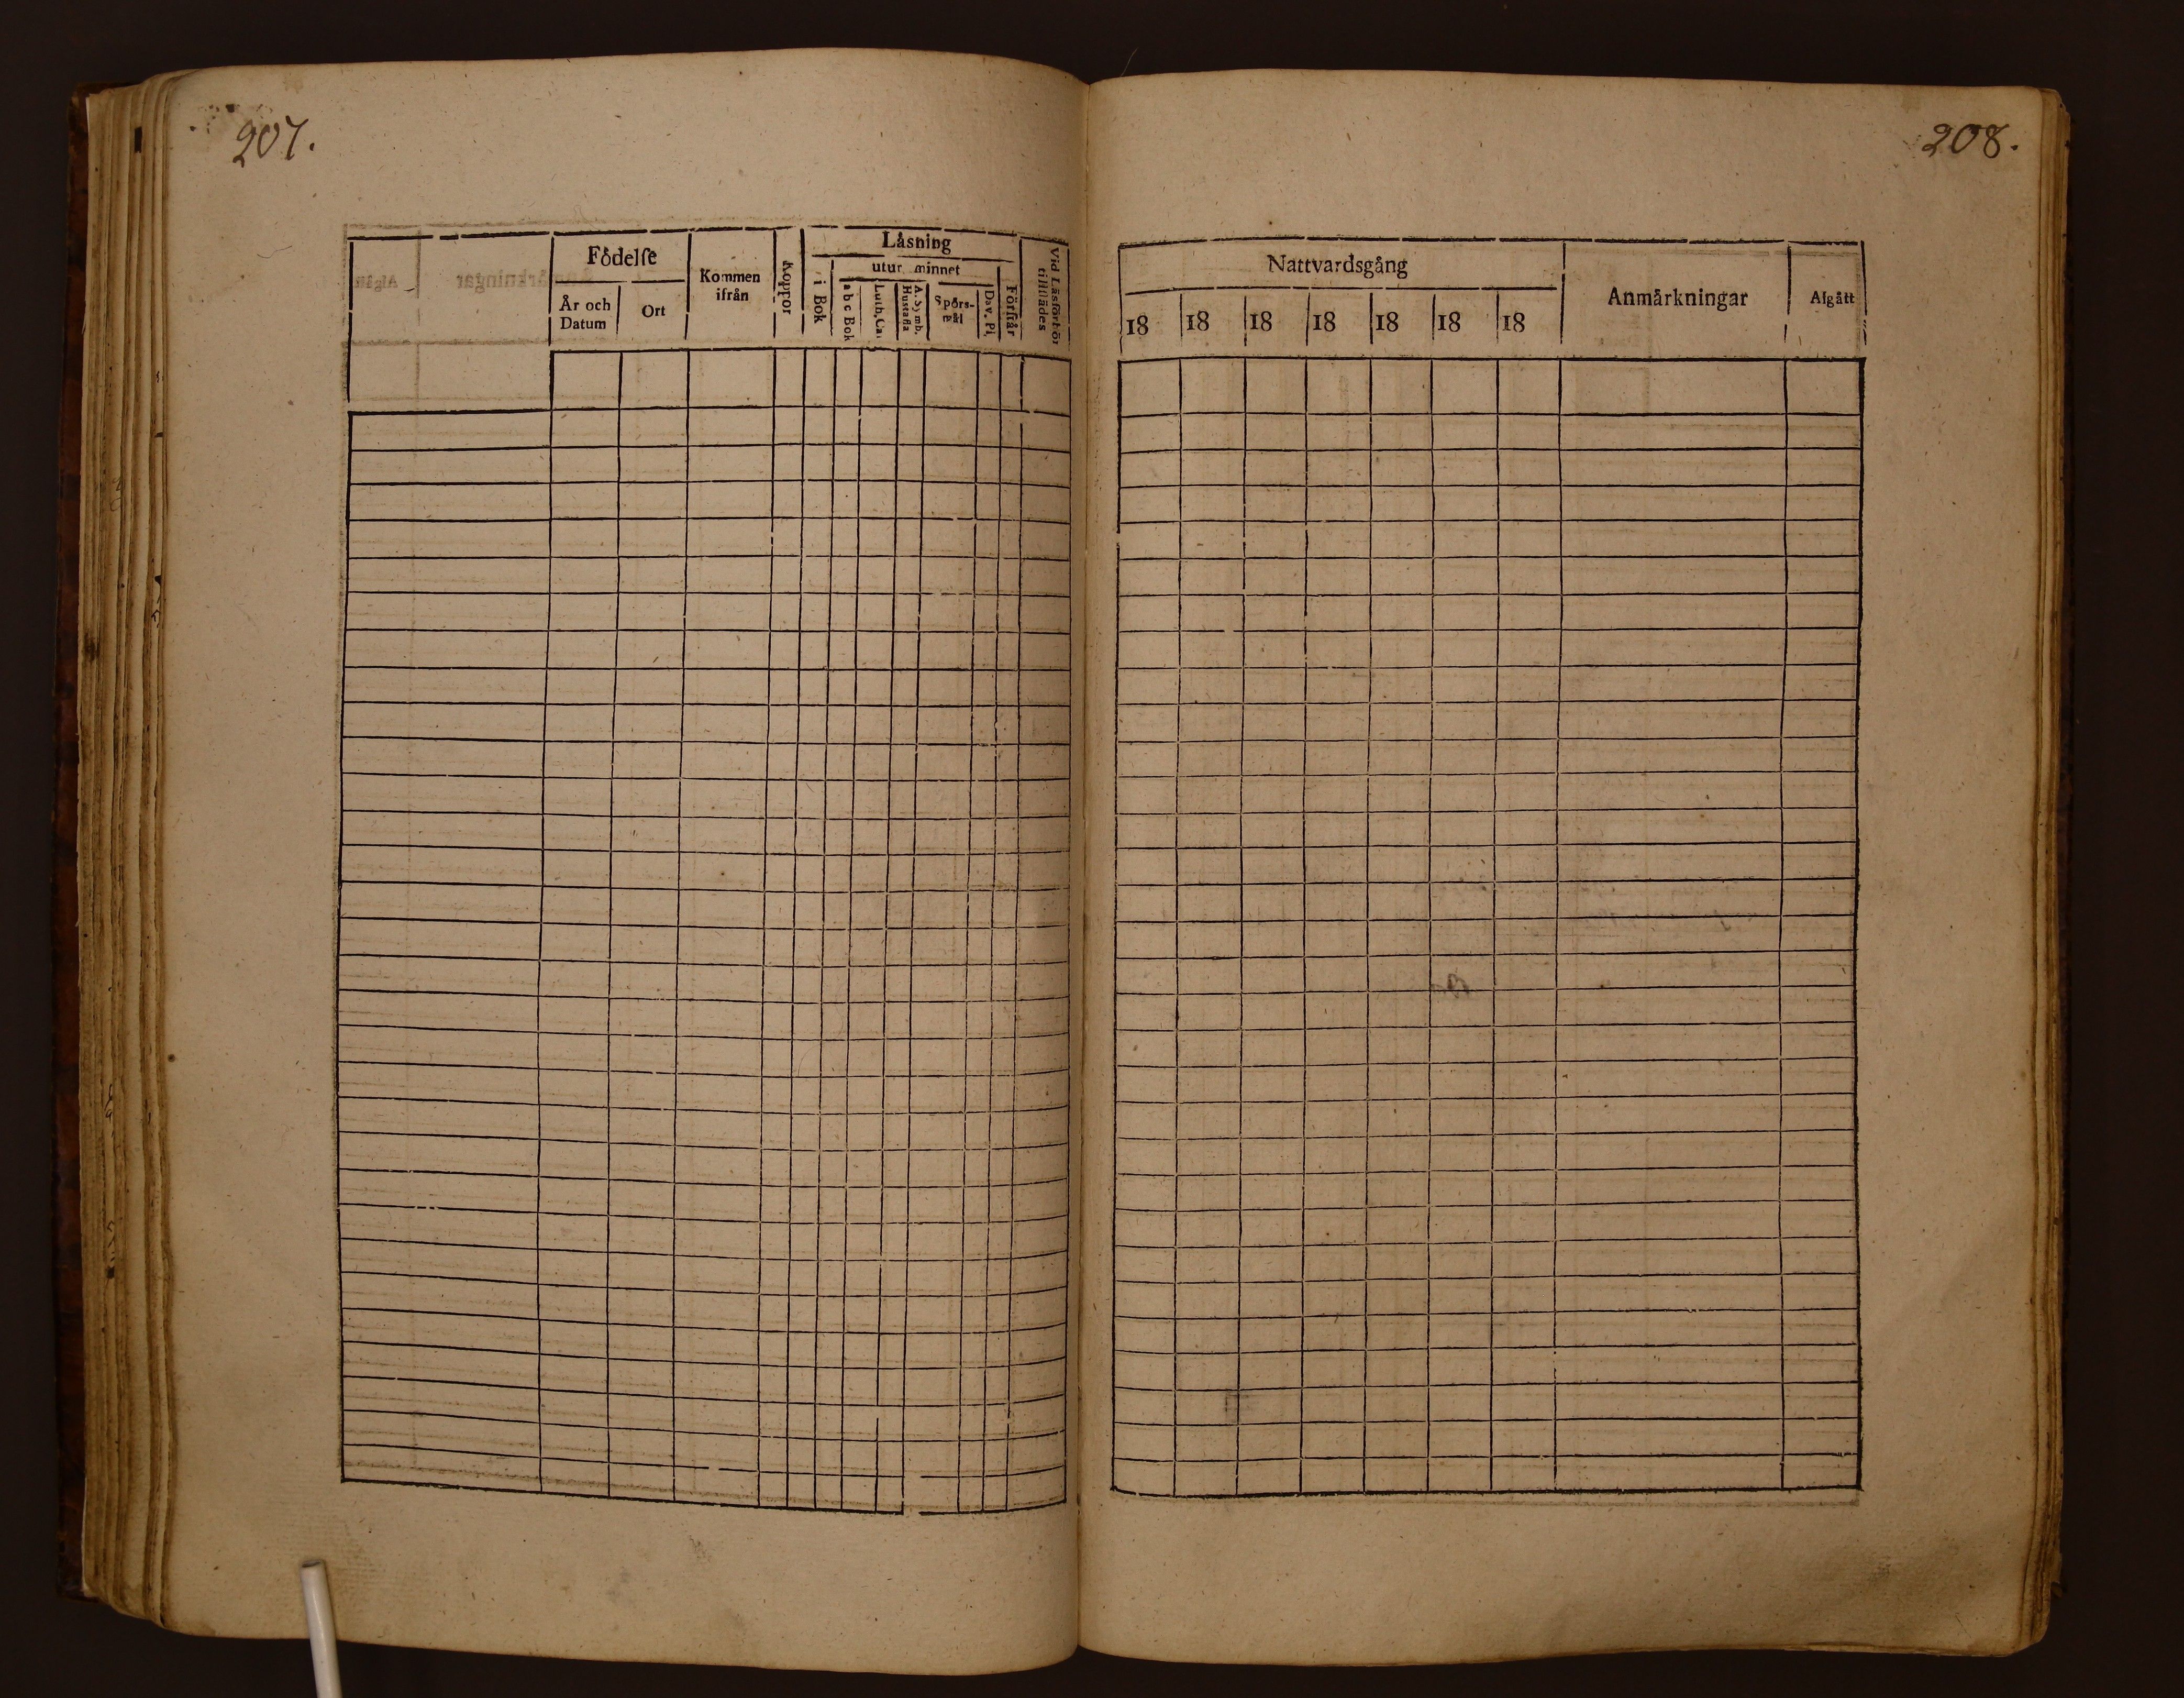 207.
208.
Födelſe
År och
Datum
Ort
Kommen
ifrån
Koppor
Låsning
i Bok
utur minnet
a b c Bok
Luth. Ca
A. Symb.
Hustafla
Spörs-
mål
Dav. Pſ
Förſtår
Vid Läsförhör
tillſtädes
Nattvardsgång
18 18 18 18 18 18 18
Anmårkningar
Afgått